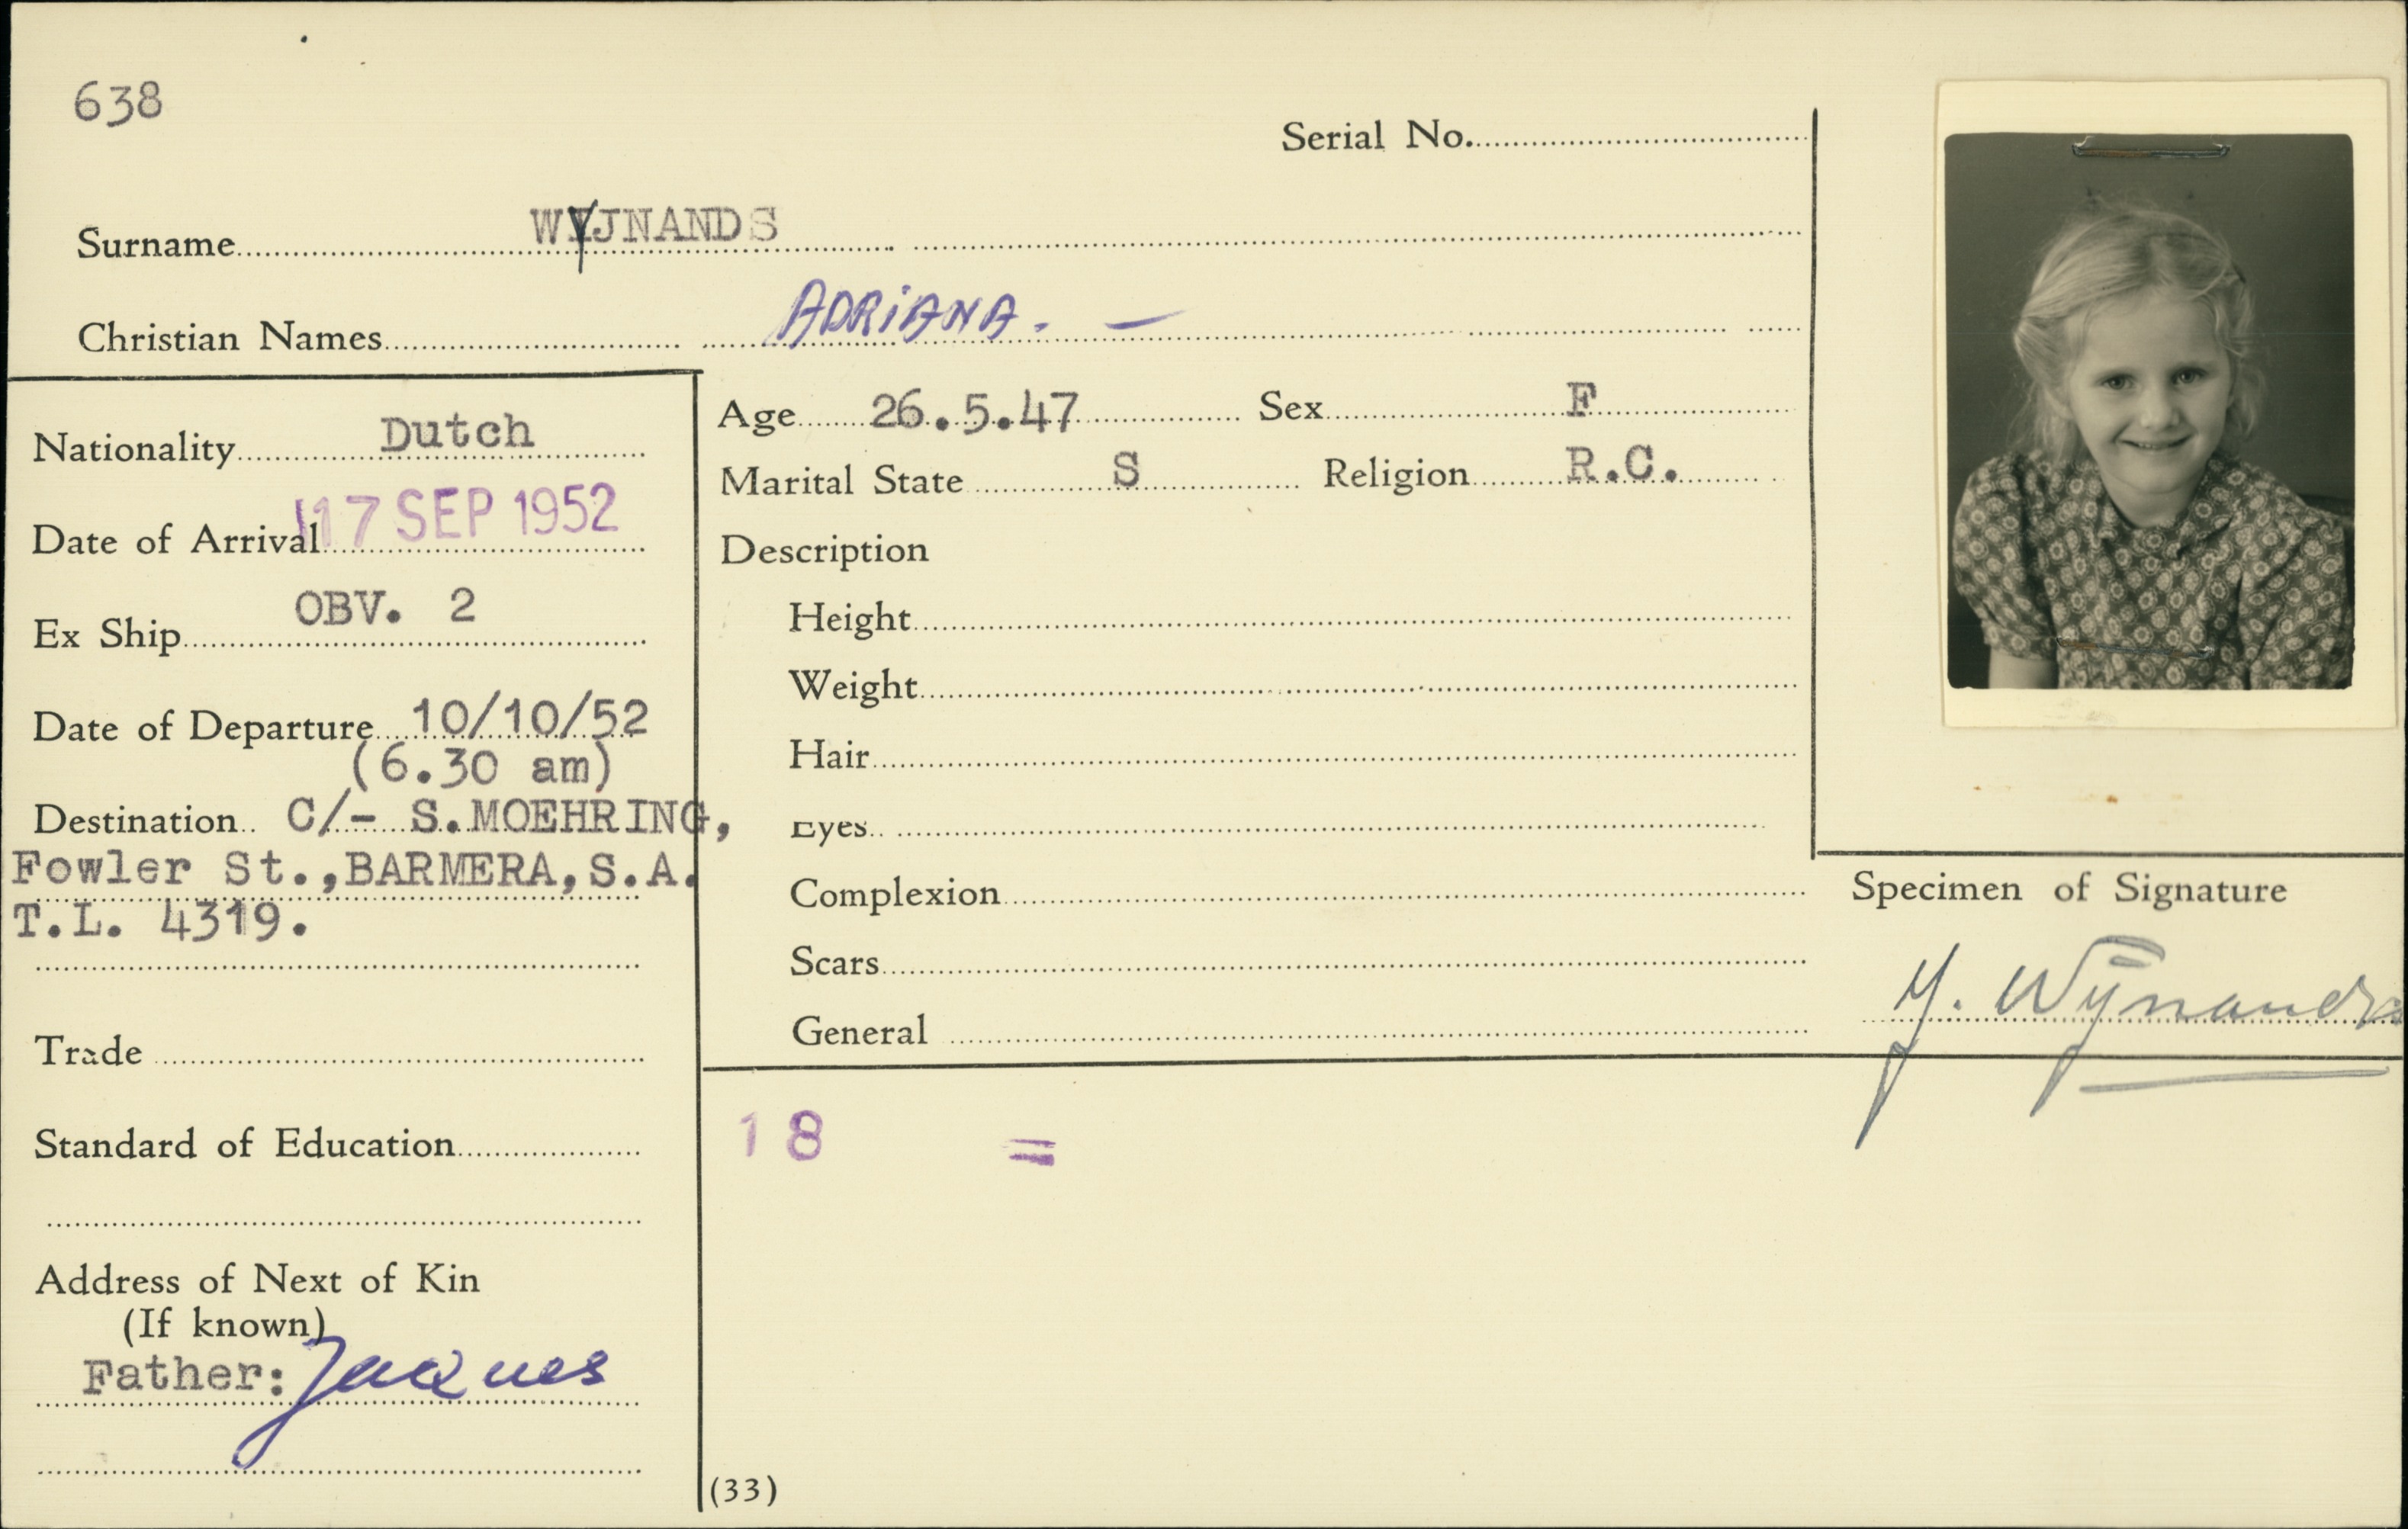 638
Serial No.
Surname WYJNANDS
Christian Names ADRiANA. —
Nationality Dutch
Date of Arrival 17 SEP 1952
Ex Ship OBV. 2
Date of Departure 10/10/52
(6.30 am)
Destination C/- S.MOEHRING,
Fowler St.,BARMERA,S.A.
T.L. 4319.
Trade
Standard of Education
Address of Next of Kin
(If known)
Father: Jacques
Age 26.5.47 Sex F
Marital State S Religion R.C.
Description
Height
Weight
Hair
Eyes
Complexion
Scars
General
18 =
(33)
Specimen of Signature
Y. Wijnands